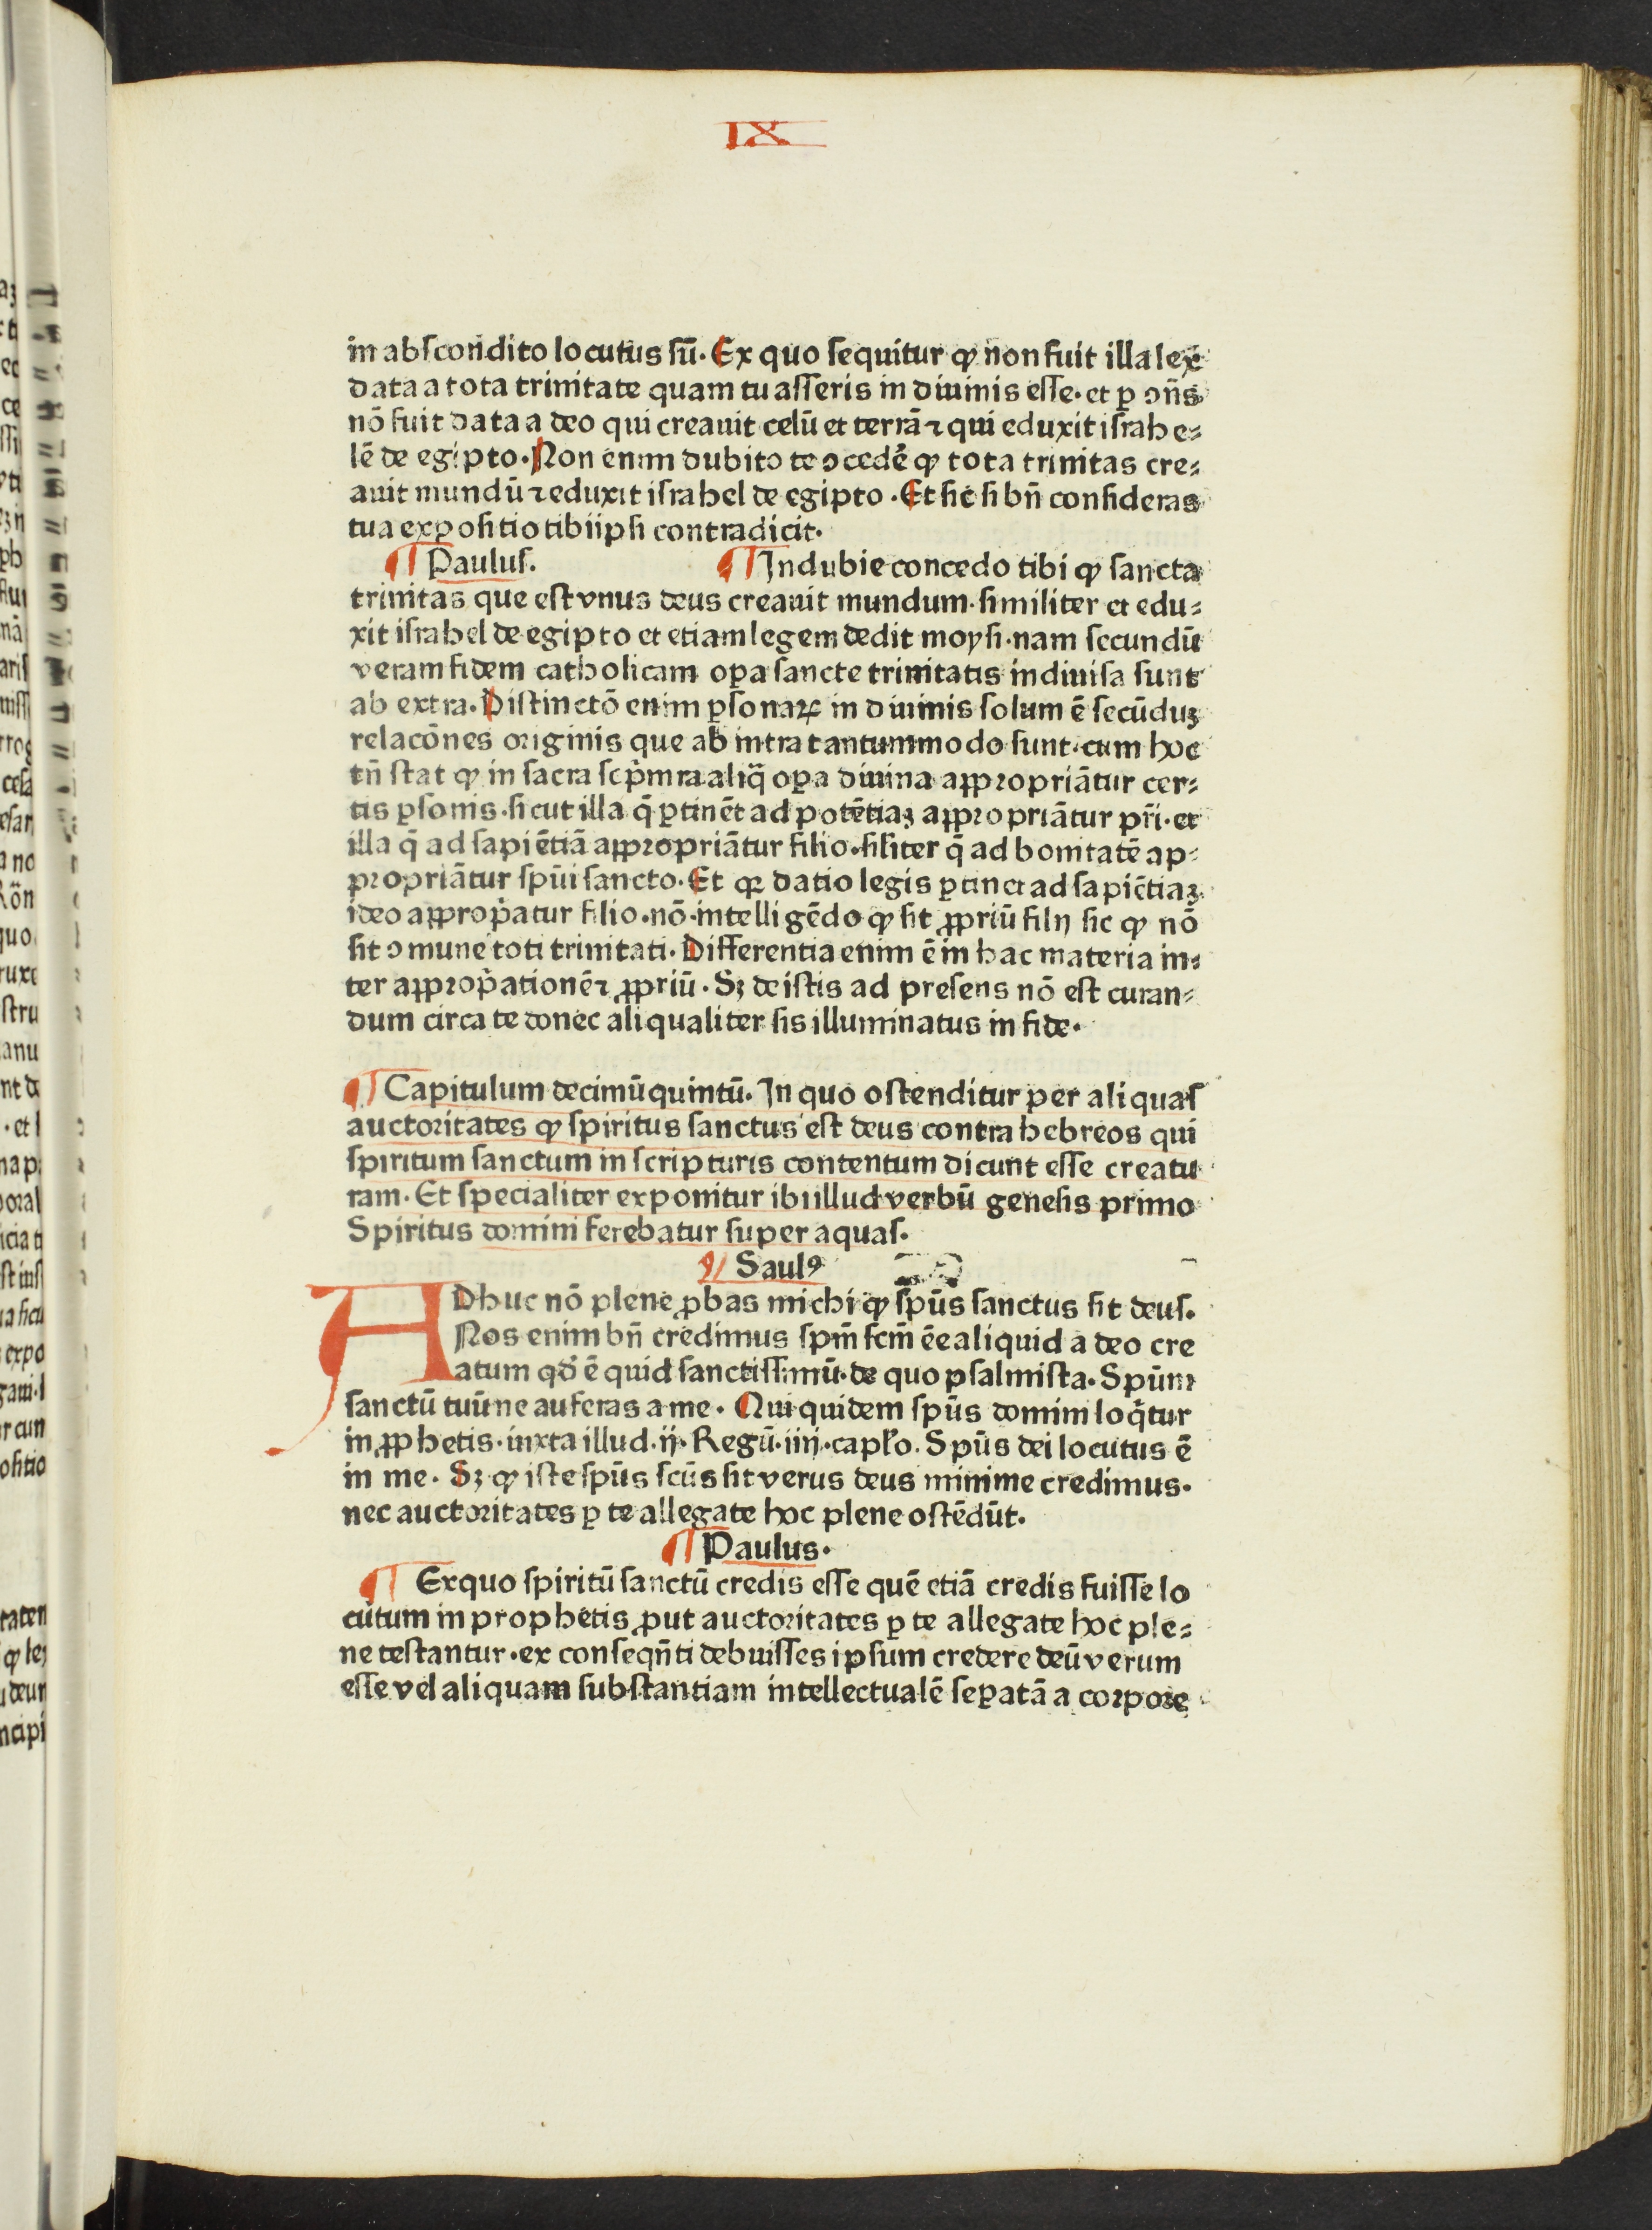 IX
in abſcondito locutus ſū. Ex quo ſequitur ꝙ non fuit illa lex
data a tota trinitate quam tu aſſeris in diuinis eſſe. et ꝑ ꝯn̄s
nō fuit data a deo qui creauit celū et terrā ⁊ qui eduxit iſrahe⸗
lē de egipto. Non enim dubito te ꝯcedē ꝙ tota trinitas cre⸗
auit mundū ⁊ eduxit iſrahel de egipto. Et ſic ſi bn̄ conſideras
tua expoſitio tibiipſi contradicit.
¶ Paulus. ¶ Indubie concedo tibi ꝙ ſancta
trinitas que eſt vnus deus creauit mundum. ſimiliter et edu⸗
xit iſrahel de egipto et etiam legem dedit moyſi. nam ſecundū
veram fidem catholicam oꝑa ſancte trinitatis indiuiſa ſunt
ab extra. Diſtinctō enim ꝑſonaꝝ in diuinis ſolum ē ſecūduꝫ
relacōnes originis que ab intra tantummodo ſunt. cum hoc
tn̄ ſtat ꝙ in ſacra ſcp̄mra aliq̄ oꝑa diuina aꝓpropriātur cer⸗
tis ꝑſonis. ſicut illa q̄ ꝑtinēt ad potētiaꝫ aꝓpropriātur pr̄i. et
illa q̄ ad ſapiētiā aꝓpropriātur filio. ſiliter q̄ ad bonitatē ap⸗
propriātur ſpūi ſancto. Et qꝛ datio legis ꝑtinet ad ſapiētiaꝫ
ideo aꝓprop̄atur filio. nō intelligēdo ꝙ ſit ꝓpriū filij ſic ꝙ nō
ſit ꝯmune toti trinitati. Differentia enim ē in hac materia in⸗
ter aꝓprop̄ationē ⁊ ꝓpriū. Sꝫ de iſtis ad preſens nō eſt curan⸗
dum circa te donec aliqualiter ſis illuminatus in fide.
¶ Capitulum decimūquintū. In quo oſtenditur per aliquaſ
auctoritates ꝙ ſpiritus ſanctus eſt deus contra hebreos qui
ſpiritum ſanctum in ſcripturis contentum dicunt eſſe creatu
ram. Et ſpecialiter exponitur ibi illud verbū geneſis primo
Spiritus domini ferebatur ſuper aquaſ.
¶ Saulꝰ
ADhuc nō plene ꝓbas michi ꝙ ſpūs ſanctus ſit deuſ.
Nos enim bn̄ credimus ſpm̄ ſcm̄ ēe aliquid a deo cre
atum qd̄ ē quid ſanctiſſimū. de quo pſalmiſta. Spūm
ſanctū tuū ne auferas a me. Qui quidem ſpūs domini loq̄tur
in ꝓphetis. iuxta illud. ij. Regū. iiij. capl̄o. Spūs dei locutus ē
in me. Sꝫ ꝙ iſte ſpūs ſcūs ſit verus deus minime credimus.
nec auctoritates ꝑ te allegate hoc plene oſtēdūt.
¶ Paulus.
¶ Exquo ſpiritū ſanctū credis eſſe quē etiā credis fuiſſe lo
cutum in prophetis ꝓut auctoritates ꝑ te allegate hoc ple⸗
ne teſtantur. ex conſeqn̄ti debuiſſes ipſum credere deū verum
eſſe vel aliquam ſubſtantiam intellectualē ſeꝑatā a corpore